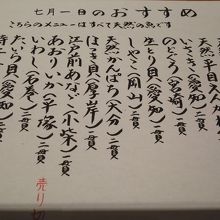 七月一日のおすすめ
こちらのメニューはすべて天然の魚です
天然平目
いさき(愛知)二貫
のどぐろ(宮崎)一貫
生とり貝(愛知)二貫
しゃこ(岡山)二貫
天然かんぱち(大分)二貫
ほっき貝(厚岸)二貫
江戸前あなご(小柴)二貫
あおりいか(平塚)二貫
いわし(石巻)二貫
たいら貝(愛知)二貫
売り切